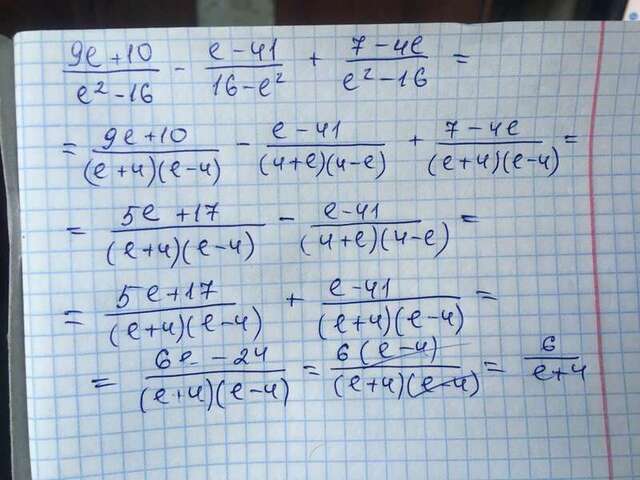 (9e+10)/(e²-16) - (e-41)/(16-e²) + (7-4e)/(e²-16) =
= (9e+10)/((e+4)(e-4)) - (e-41)/((4+e)(4-e)) + (7-4e)/((e+4)(e-4)) =
= (5e+17)/((e+4)(e-4)) - (e-41)/((4+e)(4-e)) =
= (5e+17)/((e+4)(e-4)) + (e-41)/((e+4)(e-4)) =
= (6e-24)/((e+4)(e-4)) = (6(e-4))/((e+4)(e-4)) = 6/(e+4)